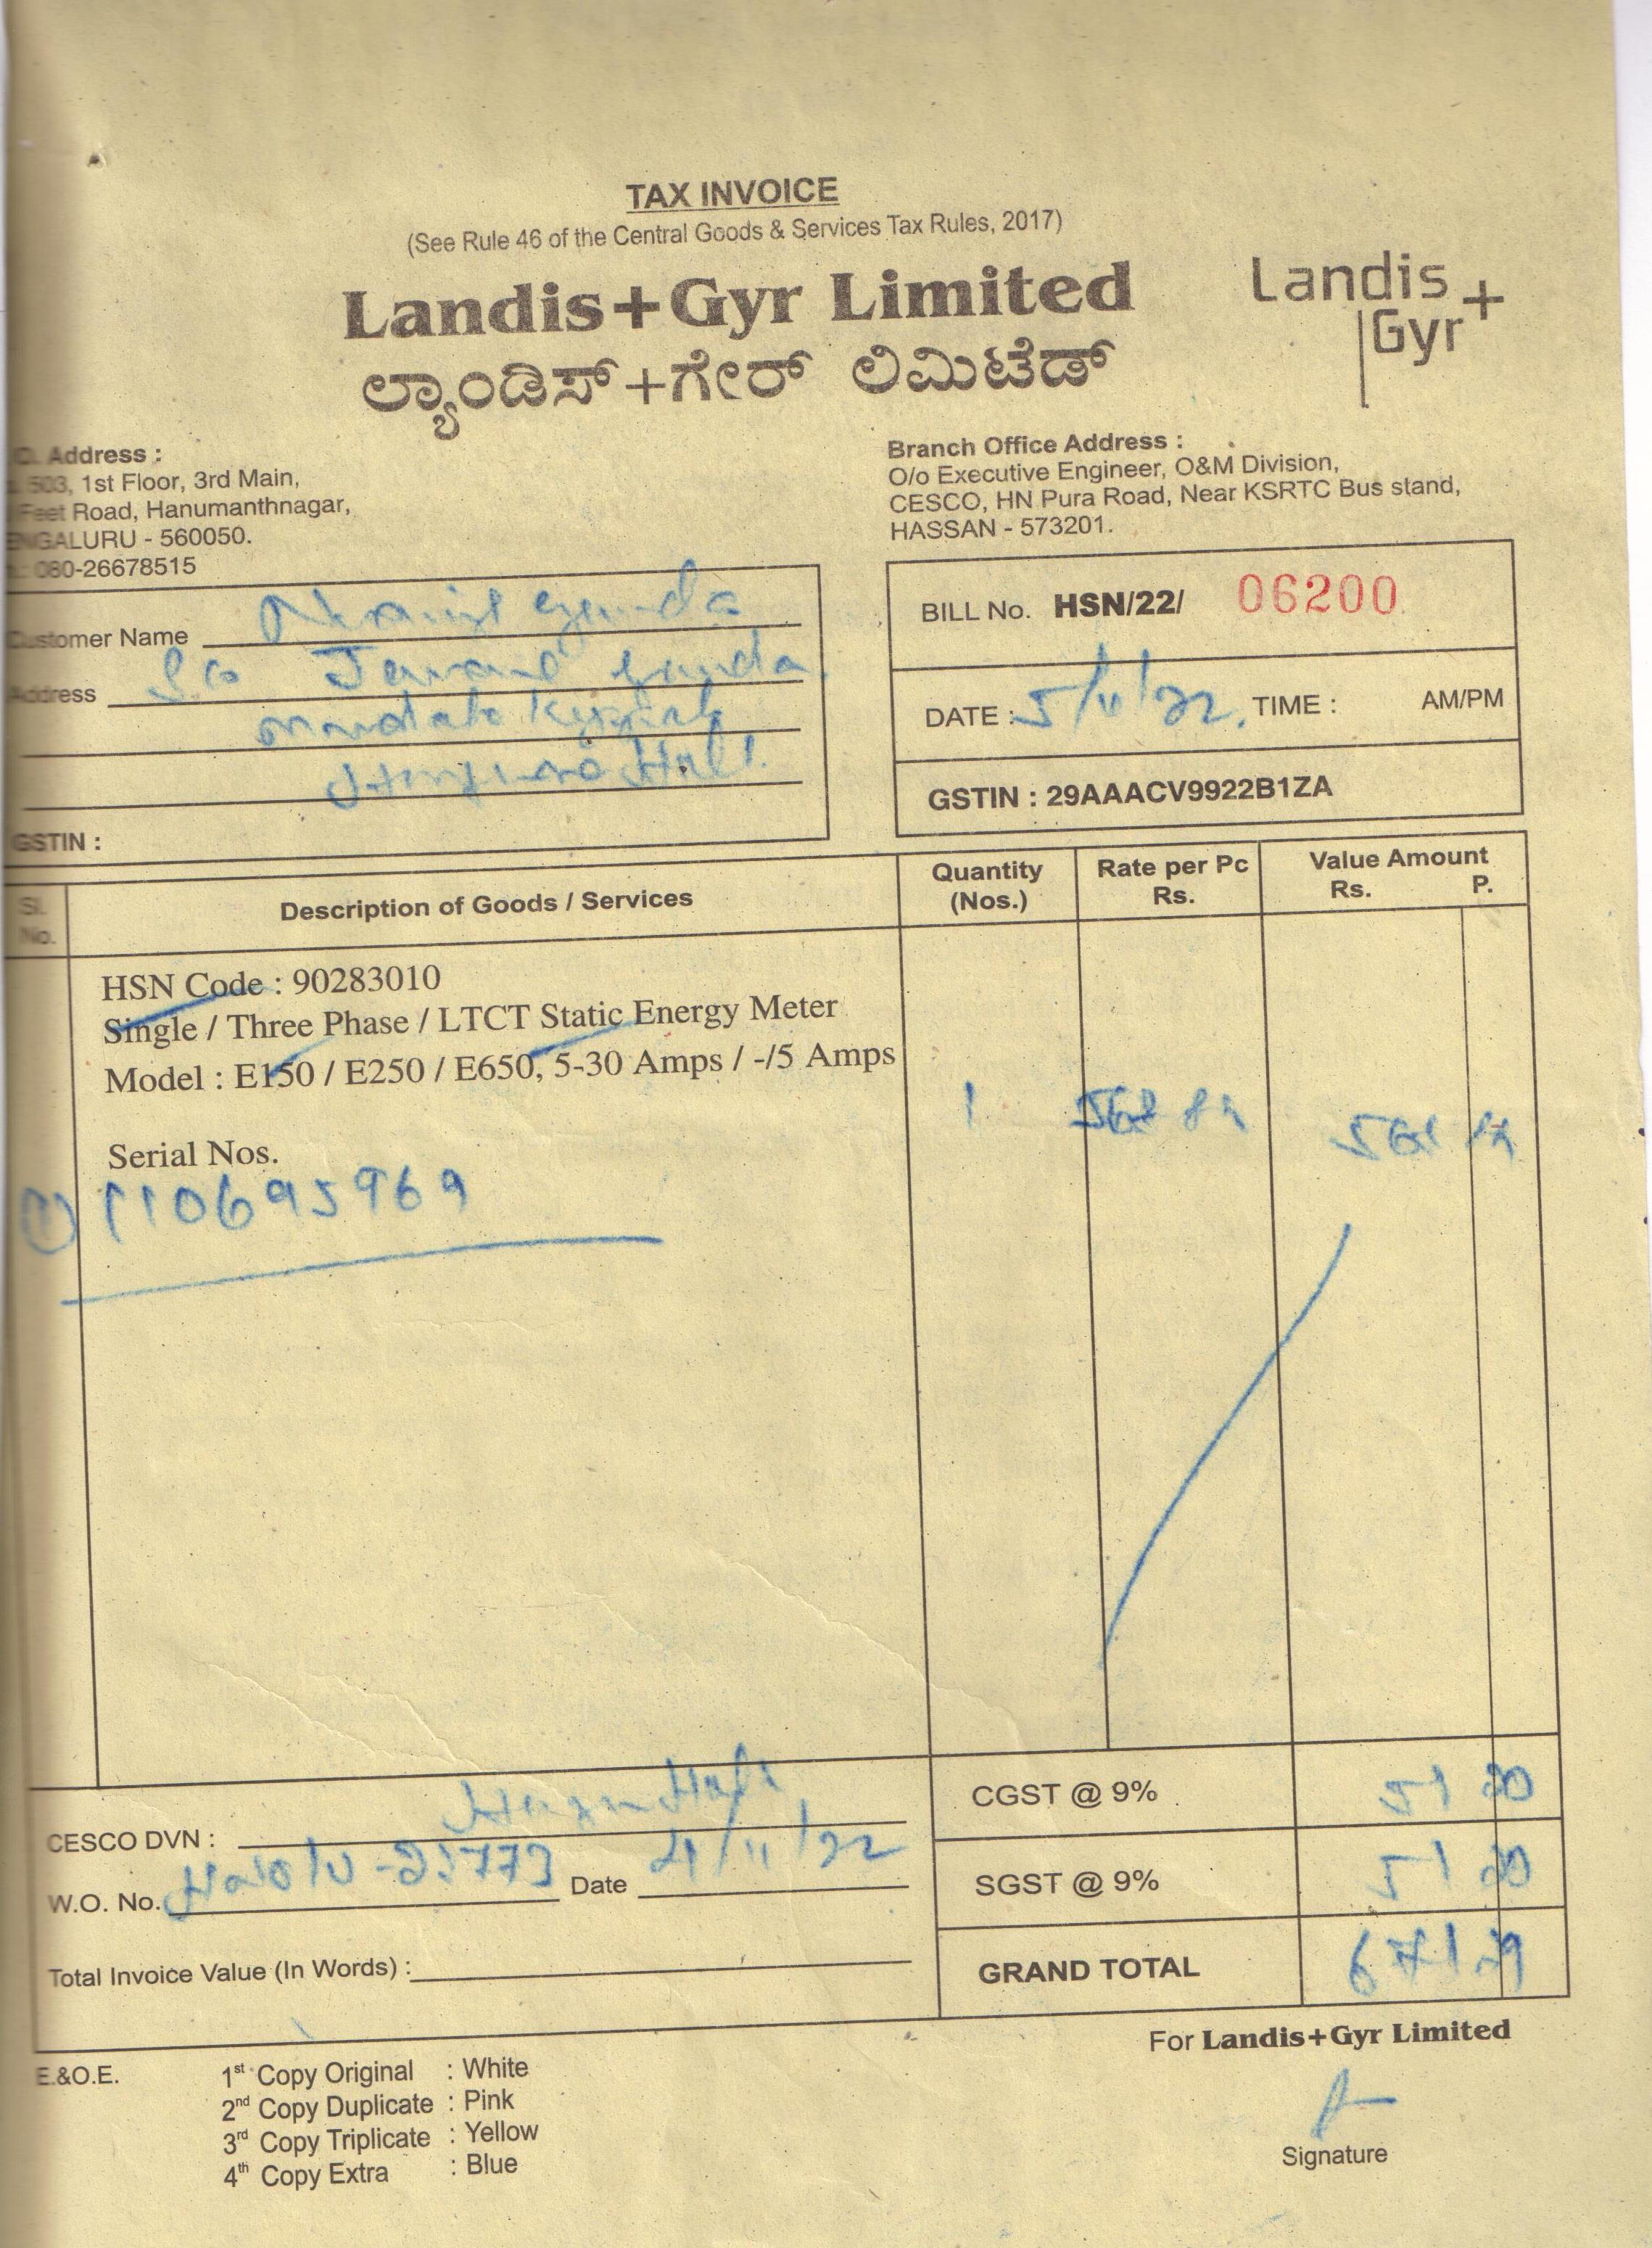 TAX INVOICE
(See Rule 46 of the Central Goods & Services Tax Rules, 2017)
Landis+Gyr Limited
Landis+
Gyr
ಲ್ಯಾಂಡಿಸ್+ಗೇರ್ ಲಿಮಿಟೆಡ್
Address :
503, 1st Floor, 3rd Main,
Feet Road, Hanumanthnagar,
NGALURU - 560050.
080-26678515
Branch Office Address :
O/o Executive Engineer, O&M Division,
CESCO, HN Pura Road, Near KSRTC Bus stand,
HASSAN - 573201.
Customer Name
Address S/o
GSTIN :
BILL No. HSN/22/ 06200
DATE : 5/11/22, TIME : AM/PM
GSTIN : 29AAACV9922B1ZA
Sl. No. Description of Goods / Services Quantity (Nos.) Rate per Pc Rs. Value Amount Rs. P.
HSN Code : 90283010
Single / Three Phase / LTCT Static Energy Meter
Model : E150 / E250 / E650, 5-30 Amps / -/5 Amps
1
Serial Nos.
① 110695969
CESCO DVN :
CGST @ 9% 51 20
W.O. No. Date 4/11/22
SGST @ 9% 51 20
Total Invoice Value (In Words) :
GRAND TOTAL 671 29
For Landis+Gyr Limited
E.&O.E.
1st Copy Original : White
2nd Copy Duplicate : Pink
3rd Copy Triplicate : Yellow
4th Copy Extra : Blue
Signature